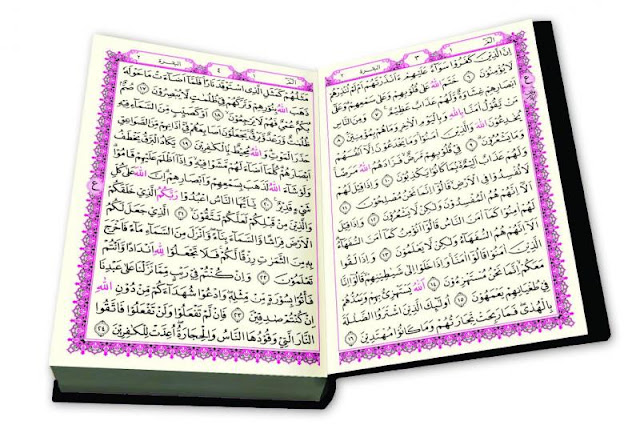 الٓمٓ ١ ٣ البقرة ٢
اِنَّ الَّذِينَ كَفَرُوا سَوَآءٌ عَلَيْهِمْ ءَاَنْذَرْتَهُمْ اَمْ لَمْ تُنْذِرْهُمْ
لَا يُؤْمِنُونَ ﴿٦﴾ خَتَمَ اللّٰهُ عَلٰى قُلُوبِهِمْ وَعَلٰى سَمْعِهِمْ وَعَلٰٓى
اَبْصَارِهِمْ غِشَاوَةٌ وَلَهُمْ عَذَابٌ عَظِيمٌ ﴿٧﴾ وَمِنَ النَّاسِ
مَنْ يَقُولُ اٰمَنَّا بِاللّٰهِ وَبِالْيَوْمِ الْاٰخِرِ وَمَا هُمْ بِمُؤْمِنِينَ ﴿٨﴾
يُخَادِعُونَ اللّٰهَ وَالَّذِينَ اٰمَنُوا وَمَا يَخْدَعُونَ اِلَّٓا اَنْفُسَهُمْ
وَمَا يَشْعُرُونَ ﴿٩﴾ فِي قُلُوبِهِمْ مَرَضٌ فَزَادَهُمُ اللّٰهُ مَرَضًا
وَلَهُمْ عَذَابٌ اَلِيمٌ بِمَا كَانُوا يَكْذِبُونَ ﴿١٠﴾ وَاِذَا قِيلَ لَهُمْ
لَا تُفْسِدُوا فِي الْاَرْضِ قَالُٓوا اِنَّمَا نَحْنُ مُصْلِحُونَ ﴿١١﴾
اَلَٓا اِنَّهُمْ هُمُ الْمُفْسِدُونَ وَلٰكِنْ لَا يَشْعُرُونَ ﴿١٢﴾ وَاِذَا قِيلَ
لَهُمْ اٰمِنُوا كَمَٓا اٰمَنَ النَّاسُ قَالُٓوا اَنُؤْمِنُ كَمَٓا اٰمَنَ السُّفَهَٓاءُ
اَلَٓا اِنَّهُمْ هُمُ السُّفَهَٓاءُ وَلٰكِنْ لَا يَعْلَمُونَ ﴿١٣﴾ وَاِذَا لَقُوا
الَّذِينَ اٰمَنُوا قَالُٓوا اٰمَنَّا وَاِذَا خَلَوْا اِلٰى شَيَاطِينِهِمْ قَالُٓوا اِنَّا
مَعَكُمْ اِنَّمَا نَحْنُ مُسْتَهْزِؤُنَ ﴿١٤﴾ اَللّٰهُ يَسْتَهْزِئُ بِهِمْ وَيَمُدُّهُمْ
فِي طُغْيَانِهِمْ يَعْمَهُونَ ﴿١٥﴾ اُولٰٓئِكَ الَّذِينَ اشْتَرَوُا الضَّلَالَةَ
بِالْهُدٰى فَمَا رَبِحَتْ تِجَارَتُهُمْ وَمَا كَانُوا مُهْتَدِينَ ﴿١٦﴾
ع
الٓمٓ ١ ٤ البقرة ٢
مَثَلُهُمْ كَمَثَلِ الَّذِي اسْتَوْقَدَ نَارًا فَلَمَّٓا اَضَٓاءَتْ مَا حَوْلَهُ
ذَهَبَ اللّٰهُ بِنُورِهِمْ وَتَرَكَهُمْ فِي ظُلُمَاتٍ لَا يُبْصِرُونَ ﴿١٧﴾ صُمٌّ
بُكْمٌ عُمْيٌ فَهُمْ لَا يَرْجِعُونَ ﴿١٨﴾ اَوْ كَصَيِّبٍ مِنَ السَّمَٓاءِ فِيهِ
ظُلُمَاتٌ وَرَعْدٌ وَبَرْقٌ يَجْعَلُونَ اَصَابِعَهُمْ فِٓي اٰذَانِهِمْ مِنَ الصَّوَاعِقِ
حَذَرَ الْمَوْتِ وَاللّٰهُ مُحِيطٌ بِالْكَافِرِينَ ﴿١٩﴾ يَكَادُ الْبَرْقُ يَخْطَفُ
اَبْصَارَهُمْ كُلَّمَٓا اَضَٓاءَ لَهُمْ مَشَوْا فِيهِ وَاِذَٓا اَظْلَمَ عَلَيْهِمْ قَامُوا
وَلَوْ شَٓاءَ اللّٰهُ لَذَهَبَ بِسَمْعِهِمْ وَاَبْصَارِهِمْ اِنَّ اللّٰهَ عَلٰى كُلِّ
شَيْءٍ قَدِيرٌ ﴿٢٠﴾ يَٓا اَيُّهَا النَّاسُ اعْبُدُوا رَبَّكُمُ الَّذِي خَلَقَكُمْ
وَالَّذِينَ مِنْ قَبْلِكُمْ لَعَلَّكُمْ تَتَّقُونَ ﴿٢١﴾ اَلَّذِي جَعَلَ لَكُمُ
الْاَرْضَ فِرَاشًا وَالسَّمَٓاءَ بِنَٓاءً وَاَنْزَلَ مِنَ السَّمَٓاءِ مَٓاءً فَاَخْرَجَ
بِهِ مِنَ الثَّمَرَاتِ رِزْقًا لَكُمْ فَلَا تَجْعَلُوا لِلّٰهِ اَنْدَادًا وَاَنْتُمْ
تَعْلَمُونَ ﴿٢٢﴾ وَاِنْ كُنْتُمْ فِي رَيْبٍ مِمَّا نَزَّلْنَا عَلٰى عَبْدِنَا
فَأْتُوا بِسُورَةٍ مِنْ مِثْلِهِ وَادْعُوا شُهَدَٓاءَكُمْ مِنْ دُونِ اللّٰهِ
اِنْ كُنْتُمْ صَادِقِينَ ﴿٢٣﴾ فَاِنْ لَمْ تَفْعَلُوا وَلَنْ تَفْعَلُوا فَاتَّقُوا
النَّارَ الَّتِي وَقُودُهَا النَّاسُ وَالْحِجَارَةُ اُعِدَّتْ لِلْكَافِرِينَ ﴿٢٤﴾
ع